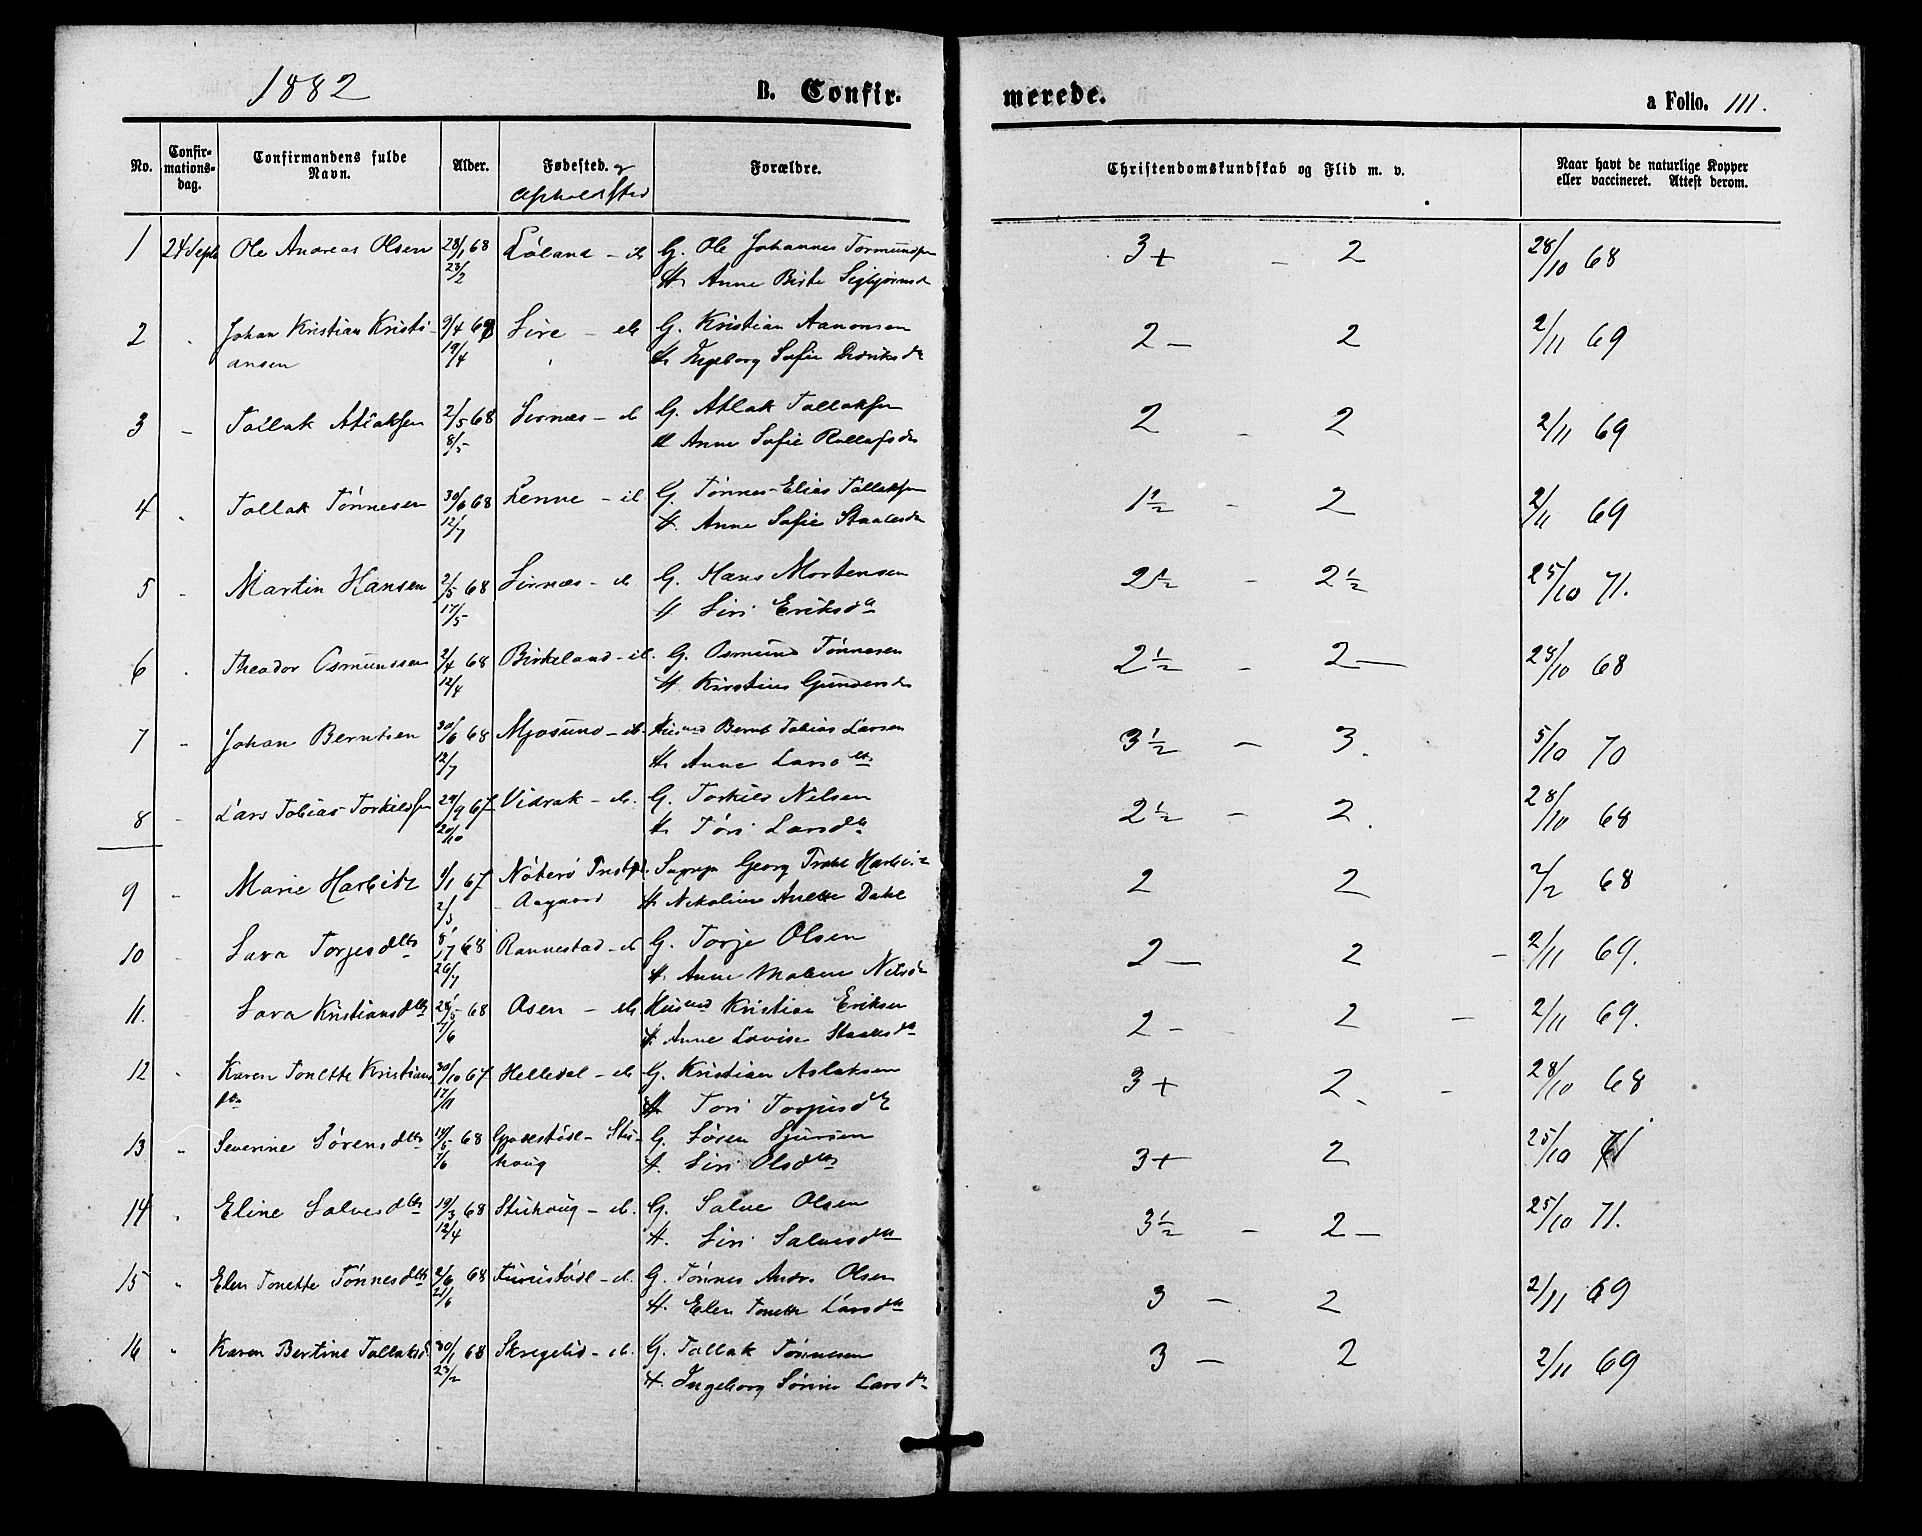 1882 B. Confir- merede. a Folio. 111.
No. Confir-mations-dag. Confirmandens fulde Navn. Alder. Fødested. og Opholdssted Forældre. Christendomskundskab og Flid m. v. Naar havt de naturlige Kopper eller vaccineret. Attest derom.
1 24 Septb Ole Andreas Olsen 28/1 68 Løland - ib G. Ole Johannes Tormundsen 3+ - 2 28/10 68
23/2 H. Anne Birte Sigbjørnsd
2 Johan Kristian Kristi- 9/4 68 Sire - ib G. Kristian Aanonsen 2 - 2 2/11 69
ansen 19/4 H. Ingeborg Sofie Didriksdtr
3 - Tallak Atlaksen 2/5 68 Sirnæs - ib G. Atlak Tallaksen 2 - 2 2/11 69
8/5 H Anne Sofie Rollafsdtr
4 Tallak Tønnesen 30/6 68 Lenne - ib G. Tønnes Elias Tallaksen 1½ - 2 2/11 69
12/7 H. Anne Sofie Staalesdtr
5 - Martin Hansen 2/5 68 Sirnæs - ib G. Hans Mortensen 2½ - 2½ 25/10 71.
17/5 H Siri Eriksdtr
6 Theodor Osmundsen 2/4 68 Birkeland - ib. G. Osmund Tønnesen 2½ - 2 - 28/10 68
12/4 H. Kirstine Gundersdtr
7 " Johan Berntsen 30/6 68 Mjosund - ib. Husmd Bernt Tobias Larsen 3½ - 3. 5/10 70
12/7 H. Anne Larsdtr
8 - Lars Tobias Torkildsen 29/9 67 Vidrak - ib. G. Torkild Nilsen 2½ - 2. 28/10 68
20/10 H. Tóri Larsdtr
9 - Marie Harbitz 9/1 67 Nøterø Georg Harbitz 2 2 2/2 68
2/3 - Aagaard H. Nikoline Anette Dahl
10 Sara Torjesdtr 8/7 68 Rannestad - ib G. Torje Olsen 2 - 2 - 2/11 69.
26/7 H. Anne Malene Nilsdtr
11. Sara Kristiansdtr 28/5 68 Osen - ib. Husmd Kristian Eriksen 2 - 2 - 2/11 69.
7/6 H. Anne Lovise Staalesdtr
12 Karen Tonette Kristians 30/10 67 Helledal - ib G. Kristian Aslaksen 3+ 2 - 28/10 68
dtr 17/11 H Tori Torjusdtr
13 " Severine Sørensdtr 14/5 68 - Stu- G. Søren Sjursen 3+ 2 25/10 71
7/6 houg H. Siri Olsdtr
14 " Eline Salvesdtr 19/3 68 Stuhoug - ib. G. Salve Olsen 3½ - 2 - 25/10 71.
12/4 H. Siri Salvesdtr
15 " Elen Tonette Tønnesdtr 2/6 68 Furustødl - ib. G. Tønnes Andrs Olsen 3 - 2 2/11 69
21/6 H. Elen Tonette Larsdtr
16 " Karen Bertine Tallaksd 30/1 68 Skregelid - ib. G. Tallak Tønnesen 3 - 2 2/11 69
23/2 H. Ingeborg Sørine Larsdtr